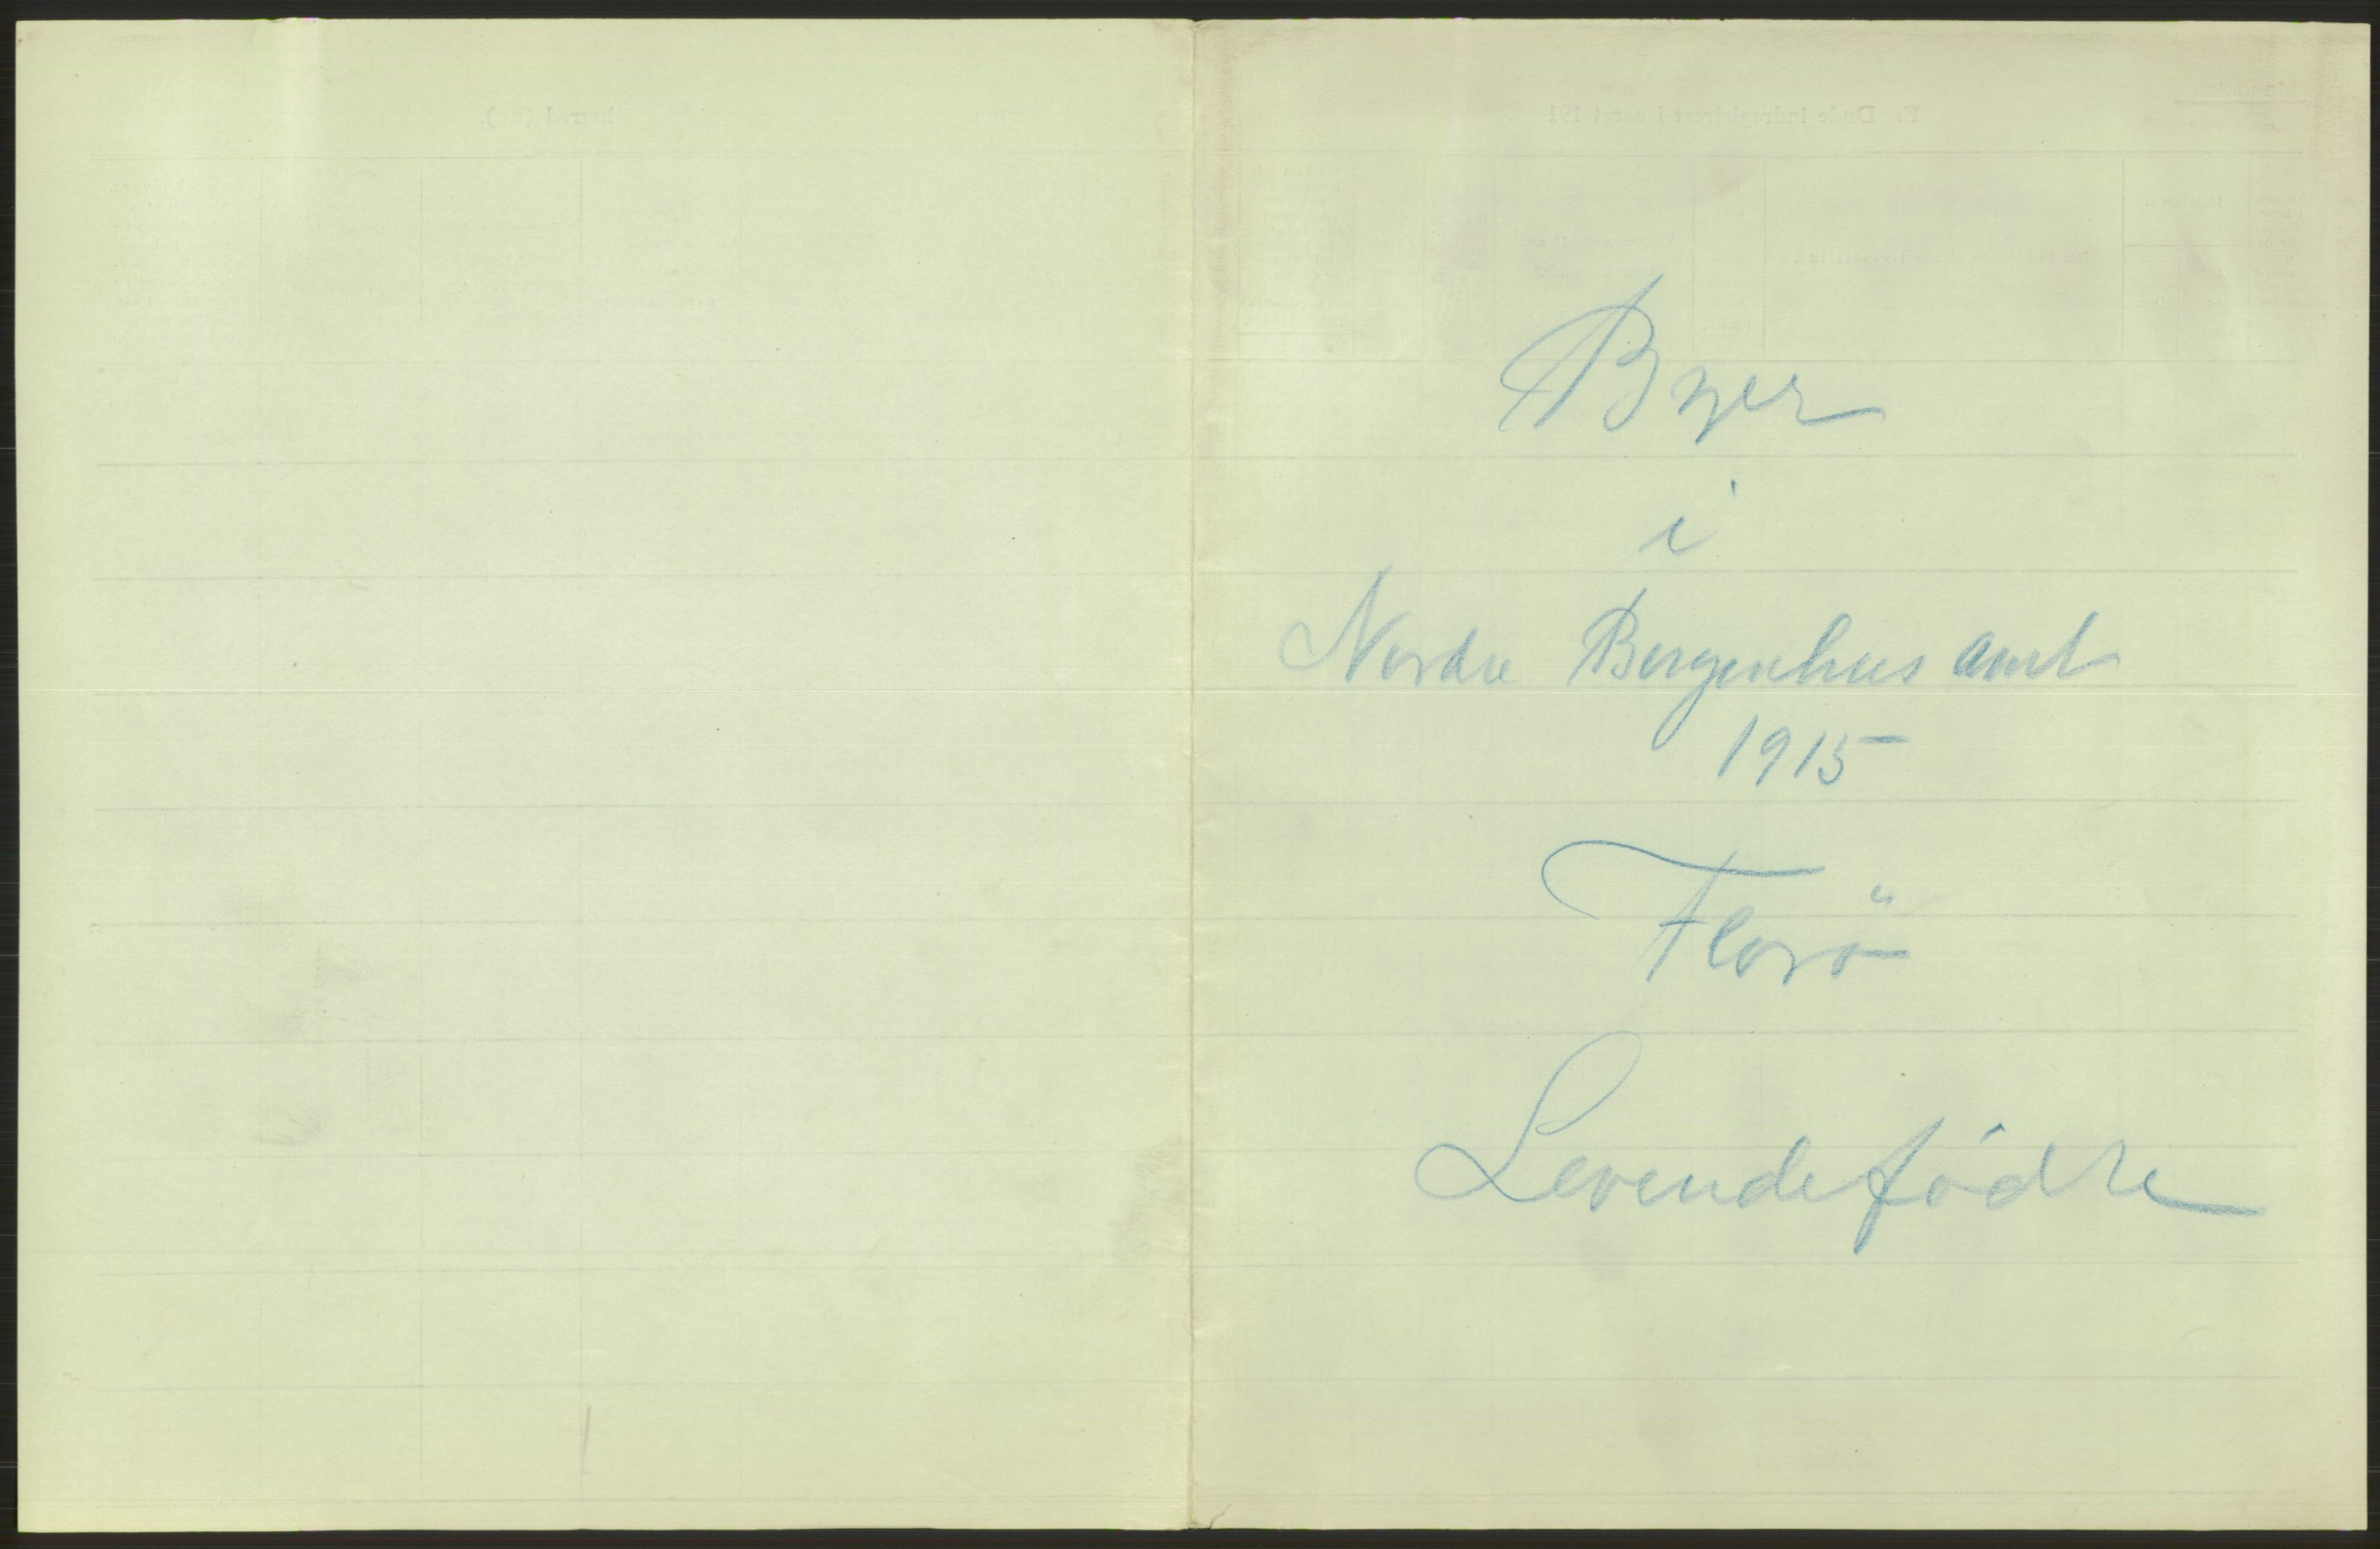 Byer
i
Nordre Bergenhus amt
1915
Florö
Levendefødte